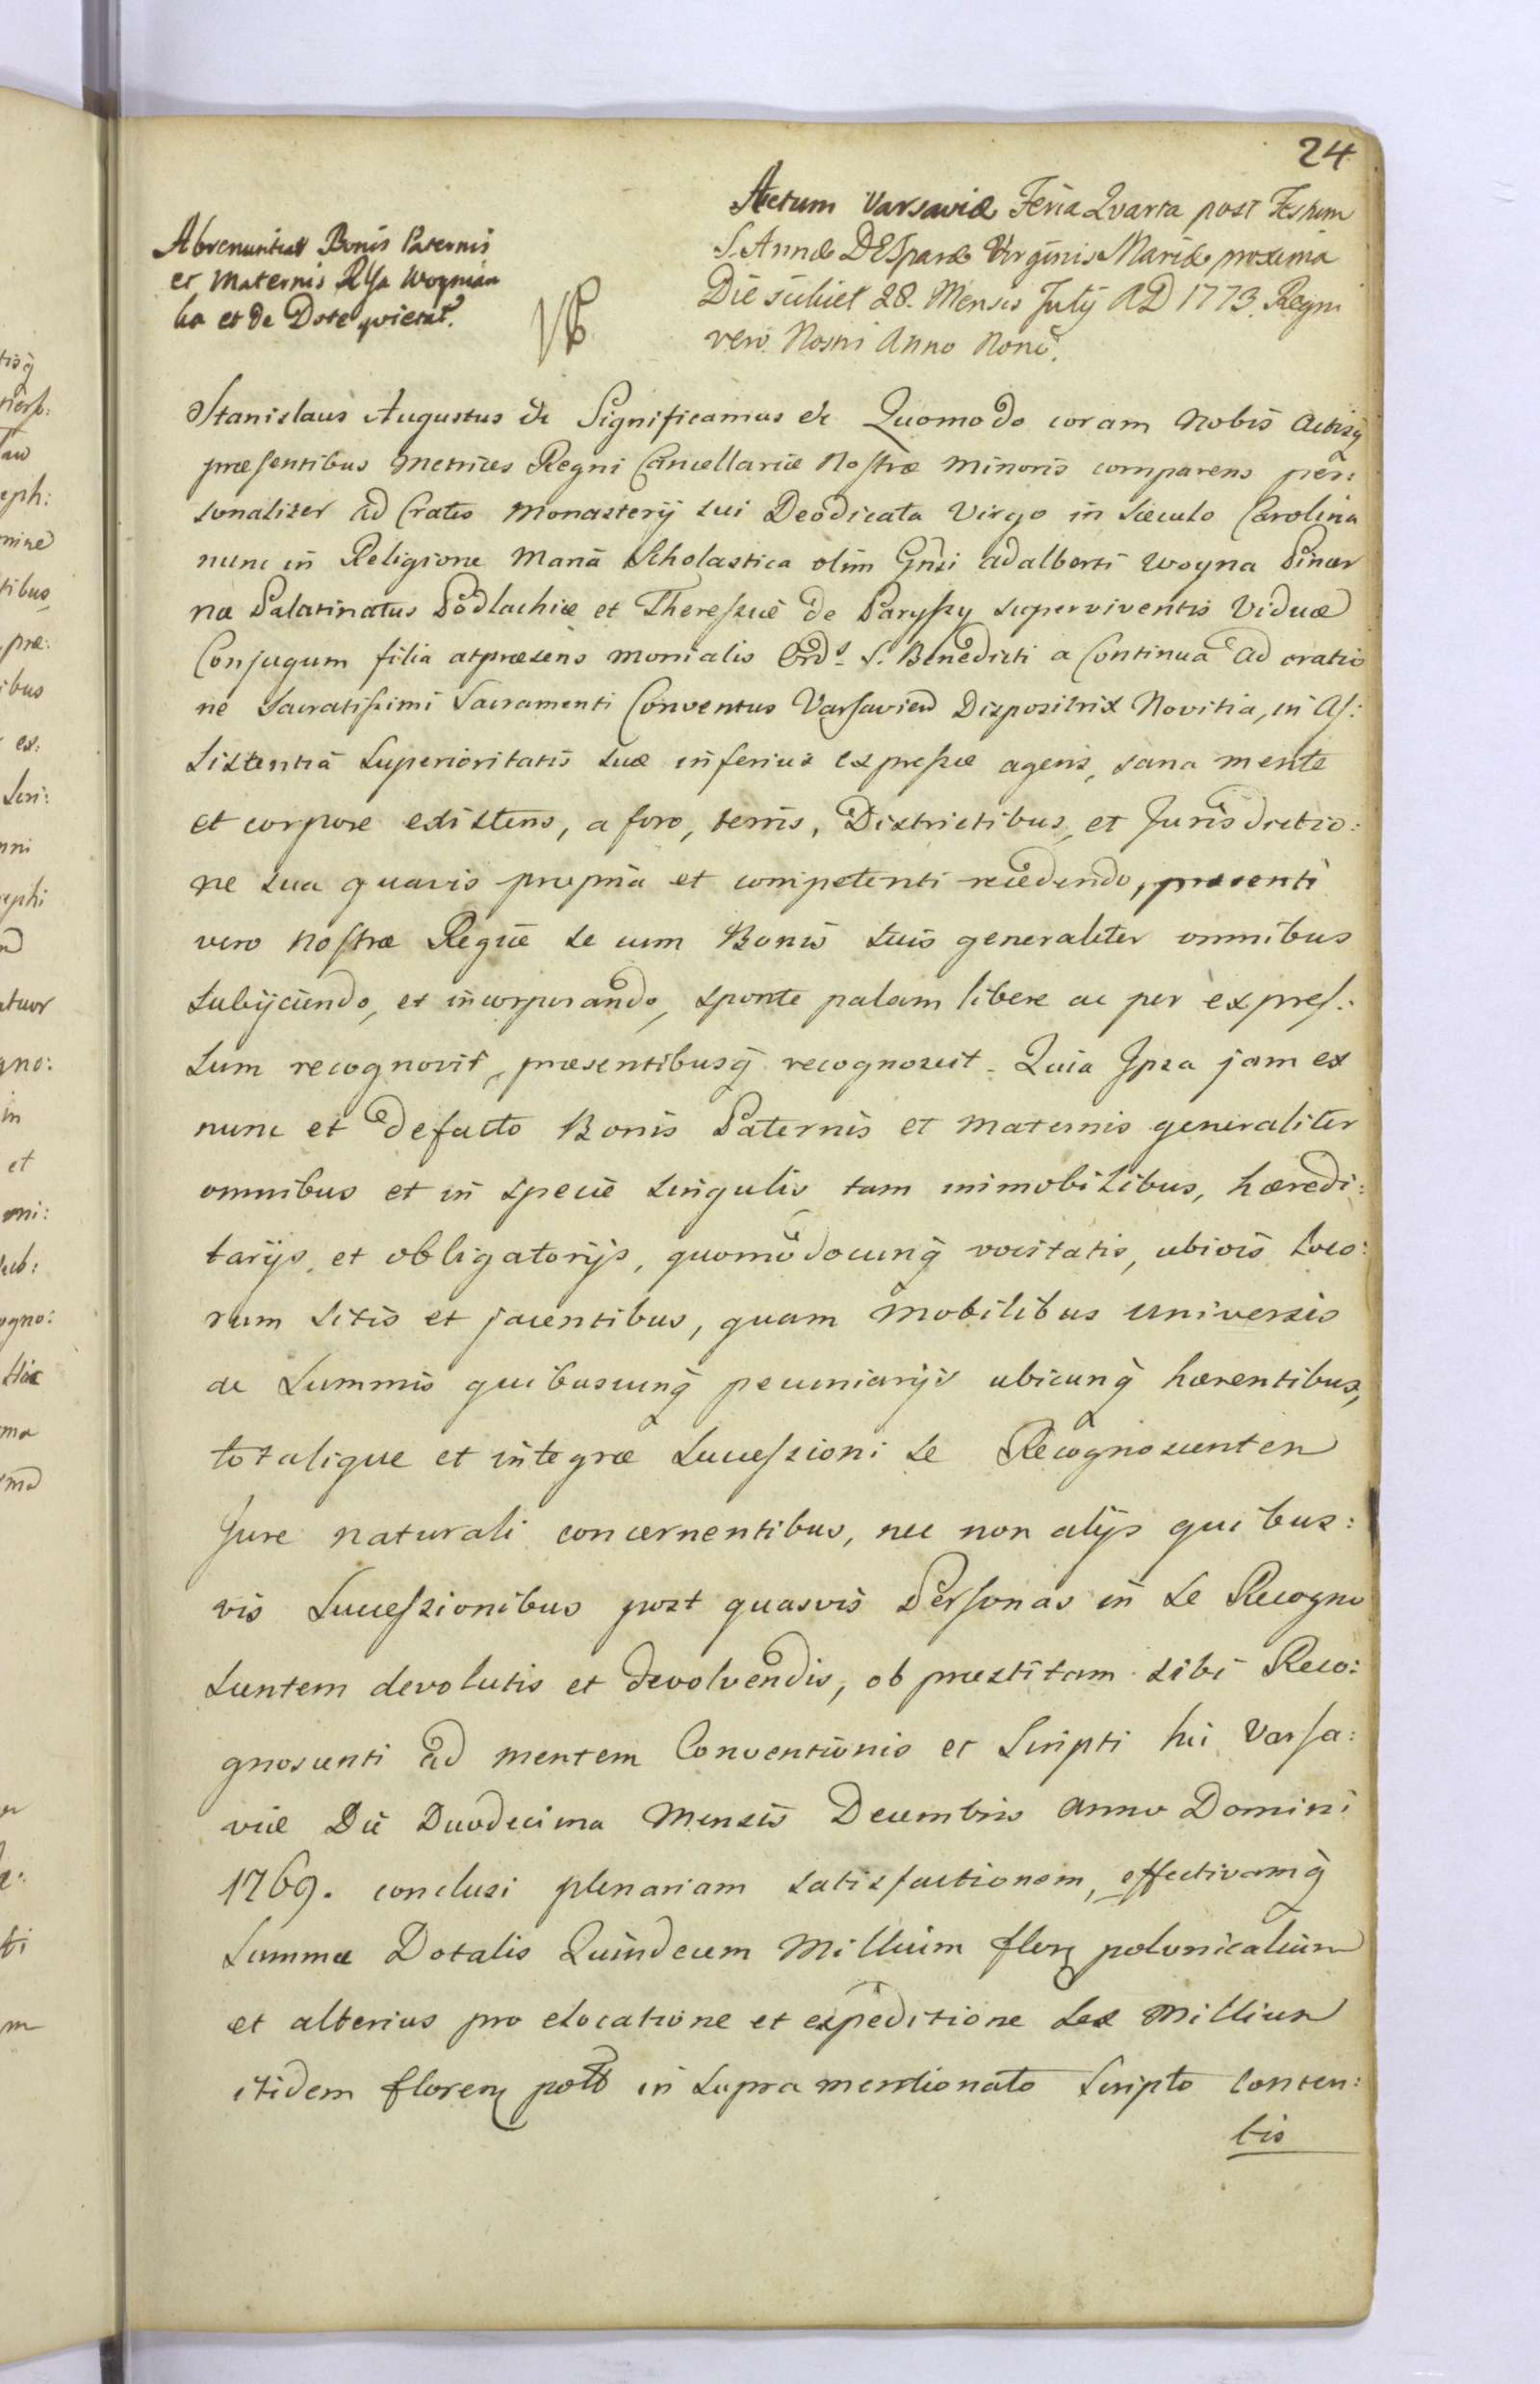 24
Abrenuntiat Bonis Paternis
et Maternis Rlsa Woynian
ka et de Dote quietat.
Actum Varsaviæ Feria Quarta post Festum
S. Annæ DEIparæ Virginis Mariæ proxima
Die scilicet 28. Mensis July AD 1773. Regni
vero Nostri Anno Nono.
Stanislaus Augustus &c Significamus &c Quomodo coram Nobis Actisq̃
præsentibus Metrices Regni Cancellariæ Nostræ Minoris comparens per:
sonaliter ad Crates Monasterij sui Deodicata Virgo in Sæculo Carolina
nunc in Religione Maria Scholastica olim Gnsi Adalberti Woyna Pincer
næ Palatinatus Podlachiæ et Theressiæ de Paryssy superviventis Viduæ
Conjugum filia atpræsens Monialis Ords S. Benedicti a Continua Ad oratio
ne Sacratissimi Sacramenti Conventus Varsavien Dispositrix Novitia, in As:
sistentia Superioritatis suæ inferius expressæ agens, sana mente
et corpore existens, a foro, terris, Districtibus, et Jurisdictio:
ne sua quavis propria et competenti recedendo, præsenti
vero Nostræ Regiæ se cum Bonis suis generaliter omnibus
subijciendo, et incorporando, sponte palam libere ac per expres:
sum recognovit, præsentibusq̃ recognoscit. Quia Ipsa jam ex
nunc et defacto Bonis Paternis et Maternis generaliter
omnibus et in specie singulis tam immobilibus, hæredi:
tarijs, et obligatorijs, quomodocunq̃ vocitatis, ubivis loco:
rum sitis et jacentibus, quam Mobilibus universis
ac Summis quibuscunq̃ pecuniarijs ubicunq̃ hærentibus,
totalique et integræ Successioni se Recognoscenten
Jure naturali concernentibus, nec non alijs quibus:
vis Successionibus post quasvis Personas in se Recogno
scentem devolutis et devolvendis, ob præstitam sibi Reco:
gnoscenti ad mentem Conventionis et Scripti hic Varsa:
viæ Die Duodecima Mensis Decembris Anno Domini
1769. conclusi plenariam satisfactionem, effectivamq̃
Summæ Dotalis Quindecem Millium flor polonicalium
et alterius pro elocatione et expeditione sex Millium
itidem floren pol in supra mentionato Scripto conten:
tis